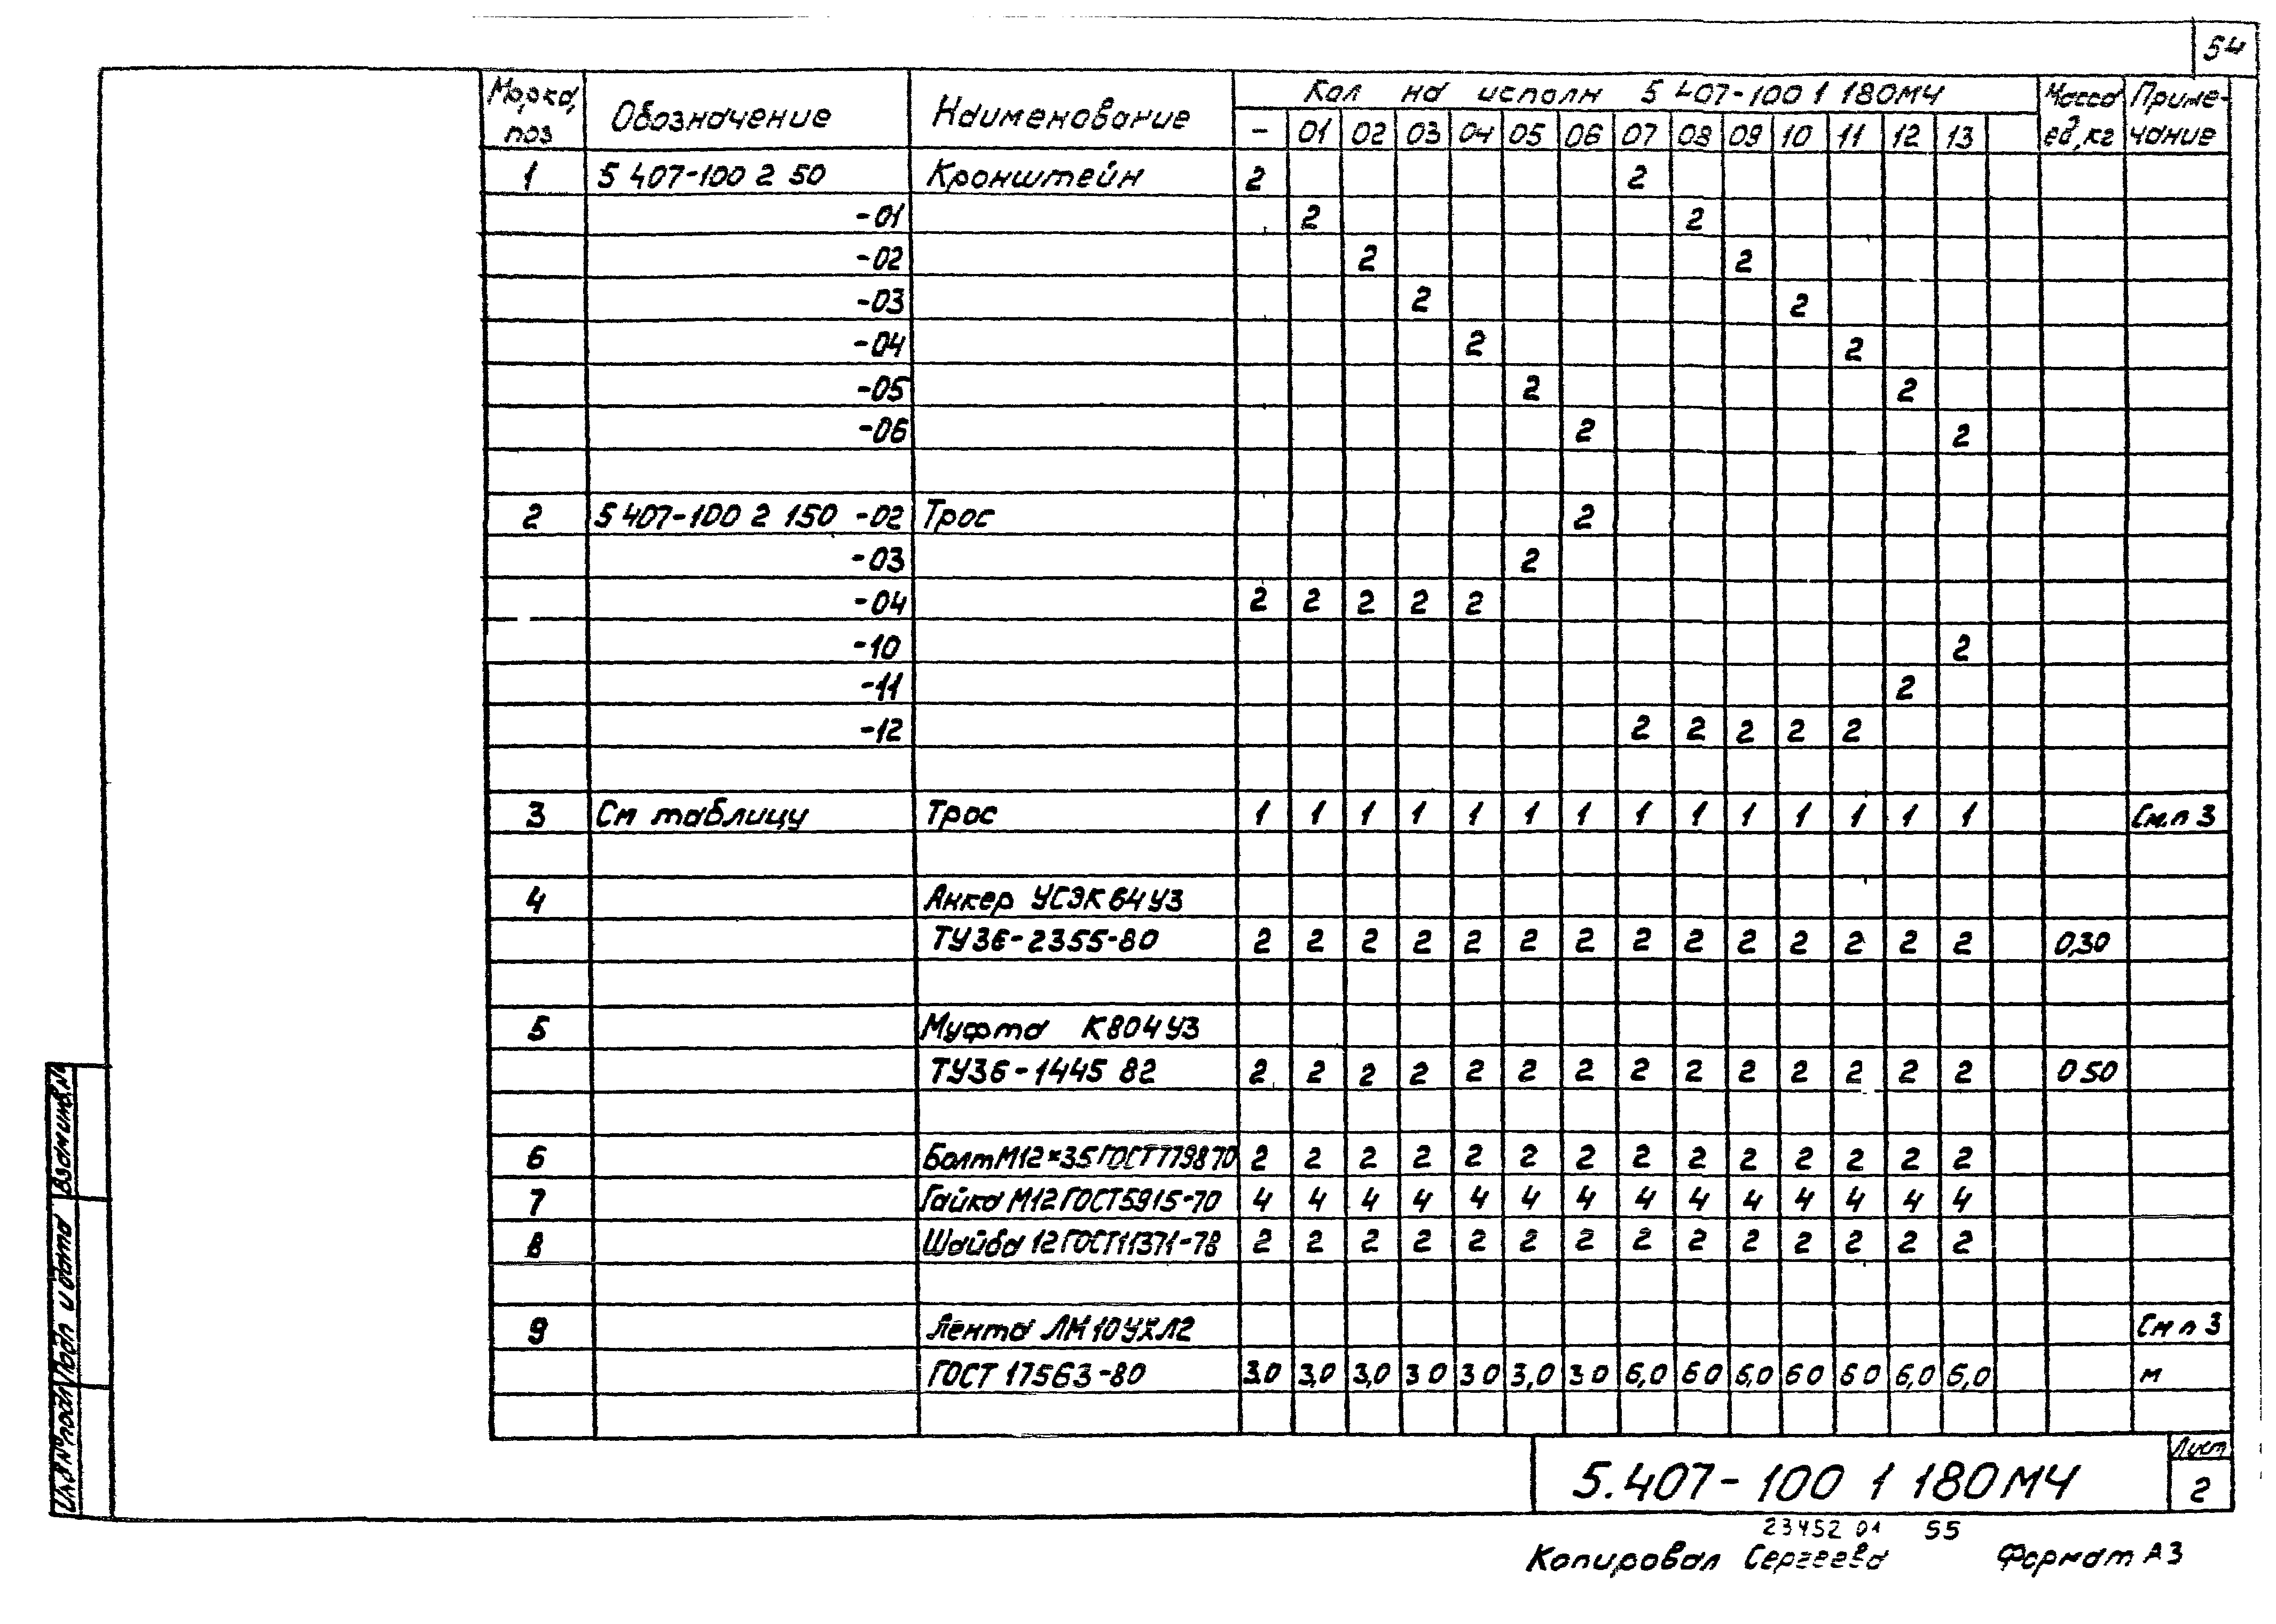 54
Марка, поз Обозначение Наименование Кол на исполн 5 407-100 1 180МЧ Масса ед, кг Приме-чание
- 01 02 03 04 05 06 07 08 09 10 11 12 13
1 5 407-100 2 50 Кронштейн 2 2
-01 2 2
-02 2 2
-03 2 2
-04 2 2
-05 2 2
-06 2 2
2 5 407-100 2 150 -02 Трос 2
-03 2
-04 2 2 2 2 2
-10 2
-11 2
-12 2 2 2 2 2
3 См таблицу Трос 1 1 1 1 1 1 1 1 1 1 1 1 1 1 См.п 3
4 Анкер УСЭК 64 У3
ТУ36-2355-80 2 2 2 2 2 2 2 2 2 2 2 2 2 2 0,30
5 Муфта К804У3
ТУ36-1445 82 2 2 2 2 2 2 2 2 2 2 2 2 2 2 0 50
6 Болт М12×35 ГОСТ7798 70 2 2 2 2 2 2 2 2 2 2 2 2 2 2
7 Гайка М12 ГОСТ5915-70 4 4 4 4 4 4 4 4 4 4 4 4 4 4
8 Шайба 12 ГОСТ11371-78 2 2 2 2 2 2 2 2 2 2 2 2 2 2
9 Лента ЛМ 10УХЛ2 См п 3
ГОСТ 17563-80 3.0 3,0 3,0 3 0 3 0 3,0 3 0 6,0 6 0 6,0 6 0 6 0 6,0 6,0 м
Инв № подл Подп и дата Взам инв. №
5.407-100 1 180МЧ
Лист
2
23452 01 55
Копировал Сергеева Формат А3